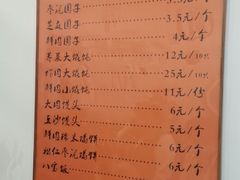 枣泥团子 3.5元/个
芝麻团子 3.5元/个
鲜肉团子 4元/个
荠菜大馄饨 12元/10只
虾肉大馄饨 25元/10只
鲜肉小馄饨 11元/份
大肉馒头 6元/个
豆沙馒头 5元/个
鲜肉 6元/个
松仁枣泥 6元/个
八宝饭 6元/个